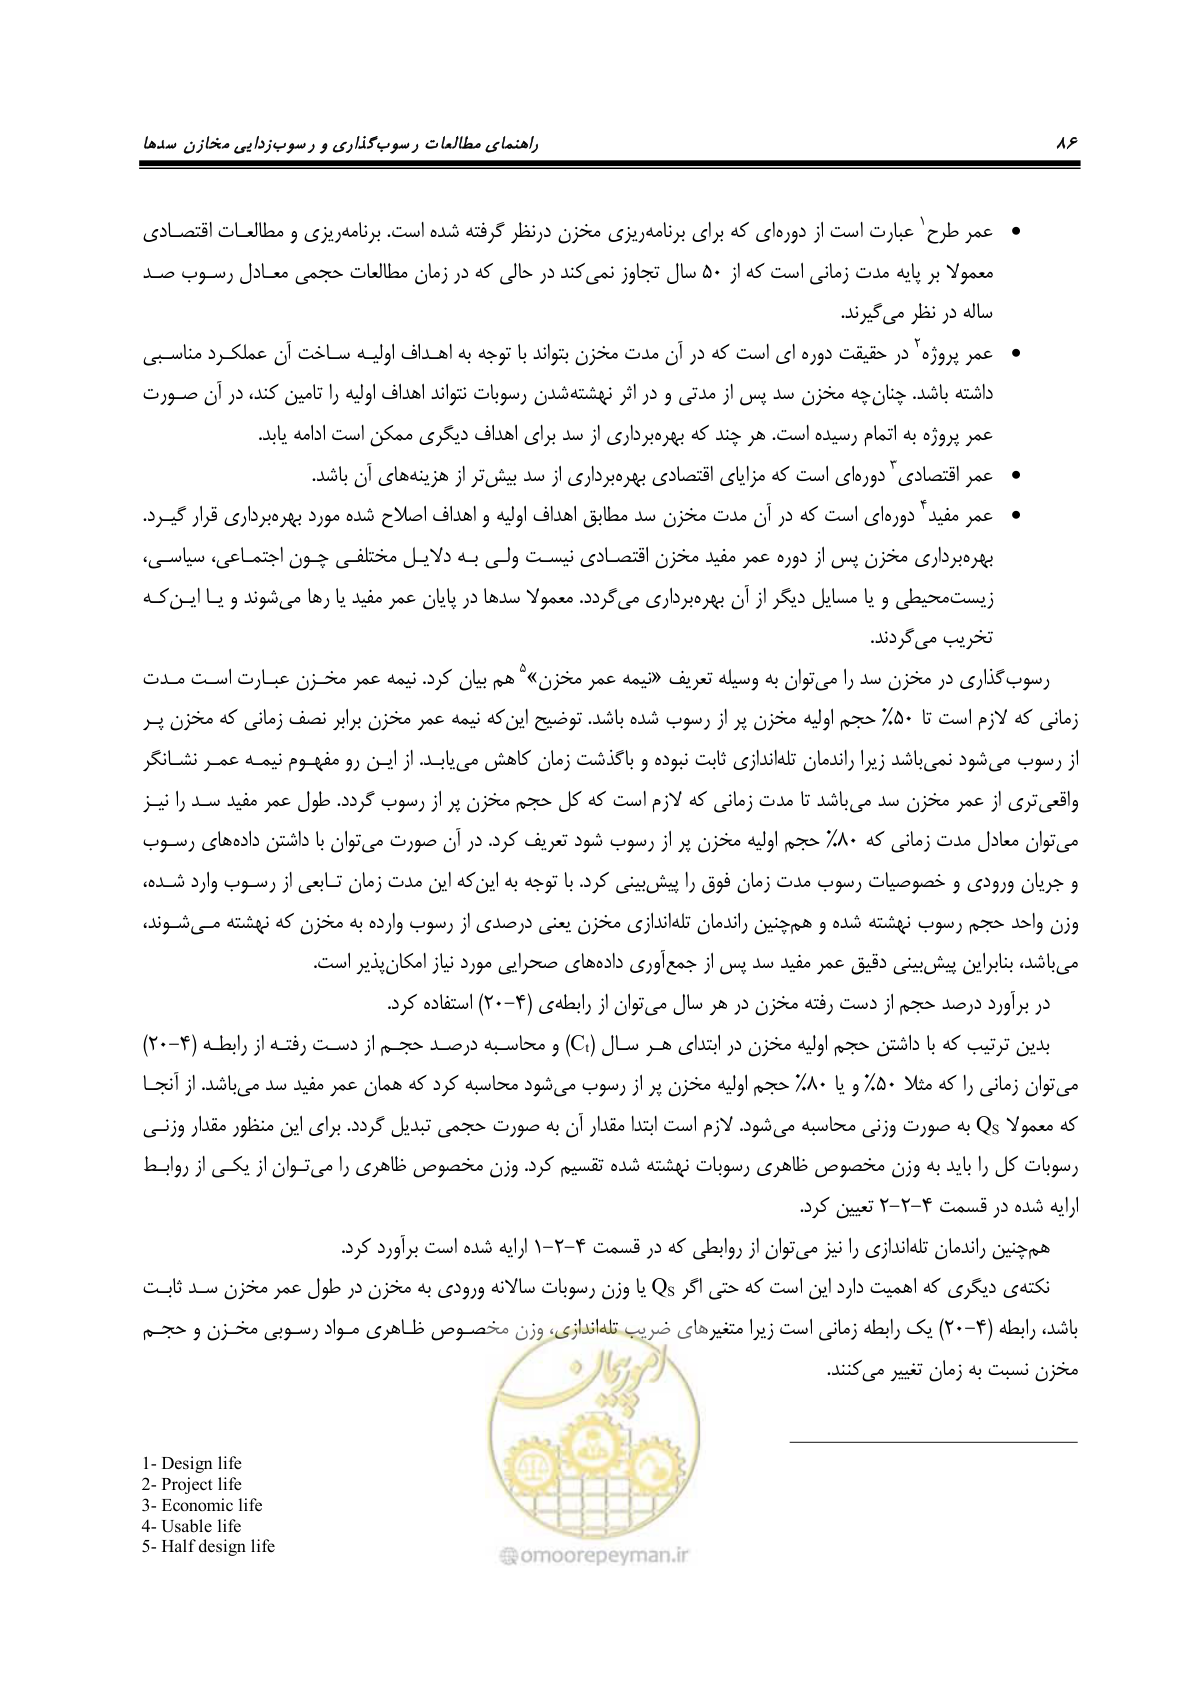 ۸۶
راهنمای مطالعات رسوب‌گذاری و رسوب‌زدایی مخازن سدها
• عمر طرح۱ عبارت است از دوره‌ای که برای برنامه‌ریزی مخزن درنظر گرفته شده است. برنامه‌ریزی و مطالعات اقتصادی
معمولا بر پایه مدت زمانی است که از ۵۰ سال تجاوز نمی‌کند در حالی که در زمان مطالعات حجمی معادل رسوب صد
ساله در نظر می‌گیرند.
• عمر پروژه۲ در حقیقت دوره ای است که در آن مدت مخزن بتواند با توجه به اهداف اولیه ساخت آن عملکرد مناسبی
داشته باشد. چنان‌چه مخزن سد پس از مدتی و در اثر نهشته‌شدن رسوبات نتواند اهداف اولیه را تامین کند، در آن صورت
عمر پروژه به اتمام رسیده است. هر چند که بهره‌برداری از سد برای اهداف دیگری ممکن است ادامه یابد.
• عمر اقتصادی۳ دوره‌ای است که مزایای اقتصادی بهره‌برداری از سد بیش‌تر از هزینه‌های آن باشد.
• عمر مفید۴ دوره‌ای است که در آن مدت مخزن سد مطابق اهداف اولیه و اهداف اصلاح شده مورد بهره‌برداری قرار گیرد.
بهره‌برداری مخزن پس از دوره عمر مفید مخزن اقتصادی نیست ولی به دلایل مختلفی چون اجتماعی، سیاسی،
زیست‌محیطی و یا مسایل دیگر از آن بهره‌برداری می‌گردد. معمولا سدها در پایان عمر مفید یا رها می‌شوند و یا این‌که
تخریب می‌گردند.
رسوب‌گذاری در مخزن سد را می‌توان به وسیله تعریف «نیمه عمر مخزن»۵ هم بیان کرد. نیمه عمر مخزن عبارت است مدت
زمانی که لازم است تا ۵۰٪ حجم اولیه مخزن پر از رسوب شده باشد. توضیح این‌که نیمه عمر مخزن برابر نصف زمانی که مخزن پر
از رسوب می‌شود نمی‌باشد زیرا راندمان تله‌اندازی ثابت نبوده و باگذشت زمان کاهش می‌یابد. از این رو مفهوم نیمه عمر نشانگر
واقعی‌تری از عمر مخزن سد می‌باشد تا مدت زمانی که لازم است که کل حجم مخزن پر از رسوب گردد. طول عمر مفید سد را نیز
می‌توان معادل مدت زمانی که ۸۰٪ حجم اولیه مخزن پر از رسوب شود تعریف کرد. در آن صورت می‌توان با داشتن داده‌های رسوب
و جریان ورودی و خصوصیات رسوب مدت زمان فوق را پیش‌بینی کرد. با توجه به این‌که این مدت زمان تابعی از رسوب وارد شده،
وزن واحد حجم رسوب نهشته شده و هم‌چنین راندمان تله‌اندازی مخزن یعنی درصدی از رسوب وارده به مخزن که نهشته می‌شوند،
می‌باشد، بنابراین پیش‌بینی دقیق عمر مفید سد پس از جمع‌آوری داده‌های صحرایی مورد نیاز امکان‌پذیر است.
در برآورد درصد حجم از دست رفته مخزن در هر سال می‌توان از رابطه‌ی (۴-۲۰) استفاده کرد.
بدین ترتیب که با داشتن حجم اولیه مخزن در ابتدای هر سال (Ct) و محاسبه درصد حجم از دست رفته از رابطه (۴-۲۰)
می‌توان زمانی را که مثلا ۵۰٪ و یا ۸۰٪ حجم اولیه مخزن پر از رسوب می‌شود محاسبه کرد که همان عمر مفید سد می‌باشد. از آنجا
که معمولا QS به صورت وزنی محاسبه می‌شود. لازم است ابتدا مقدار آن به صورت حجمی تبدیل گردد. برای این منظور مقدار وزنی
رسوبات کل را باید به وزن مخصوص ظاهری رسوبات نهشته شده تقسیم کرد. وزن مخصوص ظاهری را می‌توان از یکی از روابط
ارایه شده در قسمت ۴-۲-۲ تعیین کرد.
هم‌چنین راندمان تله‌اندازی را نیز می‌توان از روابطی که در قسمت ۴-۲-۱ ارایه شده است برآورد کرد.
نکته‌ی دیگری که اهمیت دارد این است که حتی اگر QS یا وزن رسوبات سالانه ورودی به مخزن در طول عمر مخزن سد ثابت
باشد، رابطه (۴-۲۰) یک رابطه زمانی است زیرا متغیرهای ضریب تله‌اندازی، وزن مخصوص ظاهری مواد رسوبی مخزن و حجم
مخزن نسبت به زمان تغییر می‌کنند.
امور پیمان
1- Design life
2- Project life
3- Economic life
4- Usable life
5- Half design life
@omoorepeyman.ir